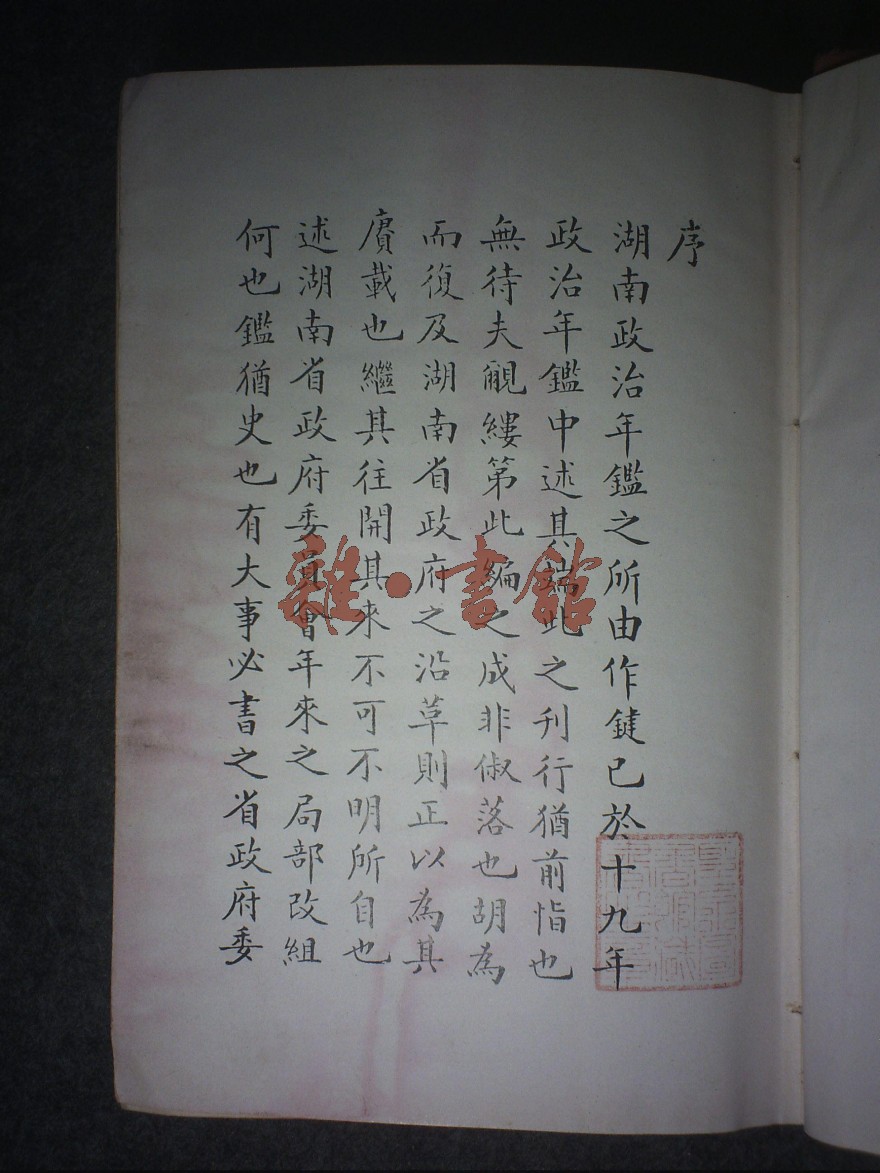 序
湖南政治年鑑之所由作鍵已於十九年
政治年鑑中述其端此之刊行猶前恉也
無待夫覼縷第此編之成非俶落也胡為
而復及湖南省政府之沿革則正以為其
賡載也繼其往開其來不可不明所自也
述湖南省政府委員會年來之局部改組
何也鑑猶史也有大事必書之省政府委
雜·書館